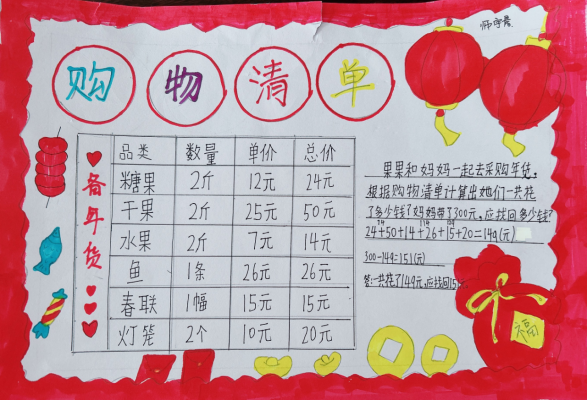 购物清单
备年货
品类 数量 单价 总价
糖果 2斤 12元 24元
干果 2斤 25元 50元
水果 2斤 7元 14元
鱼 1条 26元 26元
春联 1幅 15元 15元
灯笼 2个 10元 20元
果果和妈妈一起去采购年货,
根据购物清单计算出她们一共花
了多少钱?妈妈带了300元,应找回多少钱?
24+50+14+26+15+20=149(元)
300-149=151(元)
答:一共花了149元,应找回15
福